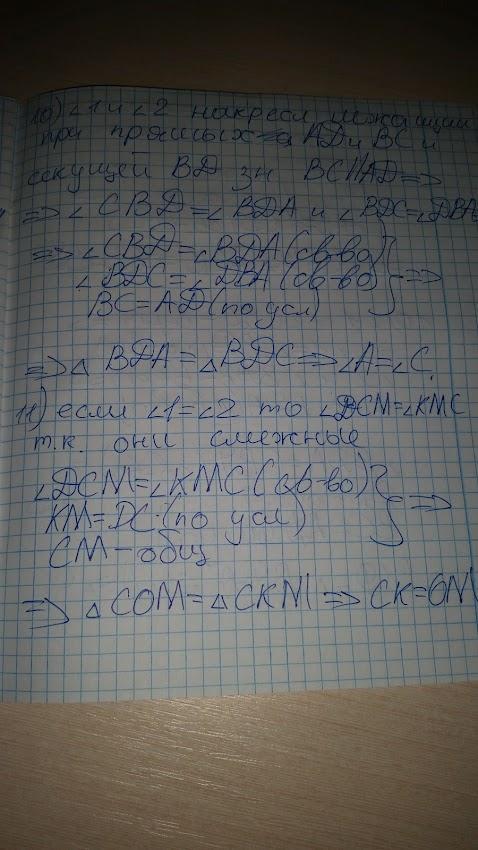 10) ∠1 и ∠2 накресл лежащии
при прямых а AD и BC и
секущей BD зн BC||AD =>
=> ∠CBD=∠BDA и ∠BDC=∠DBA
=> ∠CBD=∠BDA (св-во)
∠BDC=∠DBA (св-во) } =>
BC=AD (по усл)
=> △BDA=△BDC => ∠A=∠C.
11) если ∠1=∠2 то ∠DCM=∠KMC
т.к. они смежные
∠DCM=∠KMC (св-во)
KM=DC (по усл) } =>
CM-общ
=> △COM=△CKM => CK=